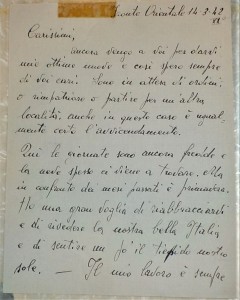 Fronte Orientale 14-3-42
XX
Carissimi,
ancora vengo a voi per darvi
mie ottime nuove e così spero sempre
di voi cari. Sono in attesa di ordini,
o rimpatriare o partire per un'altra
località, anche in questo caso è ugual-
mente certo l'avvicendamento.
Qui le giornate sono ancora fredde e
la neve spesso ci viene a trovare, Ma
in confronto dei mesi passati è primavera.
Ho una gran voglia di riabbracciarvi
e di rivedere la nostra bella Italia
e di sentire un po' il tiepido nostro
sole. — Il mio lavoro è sempre